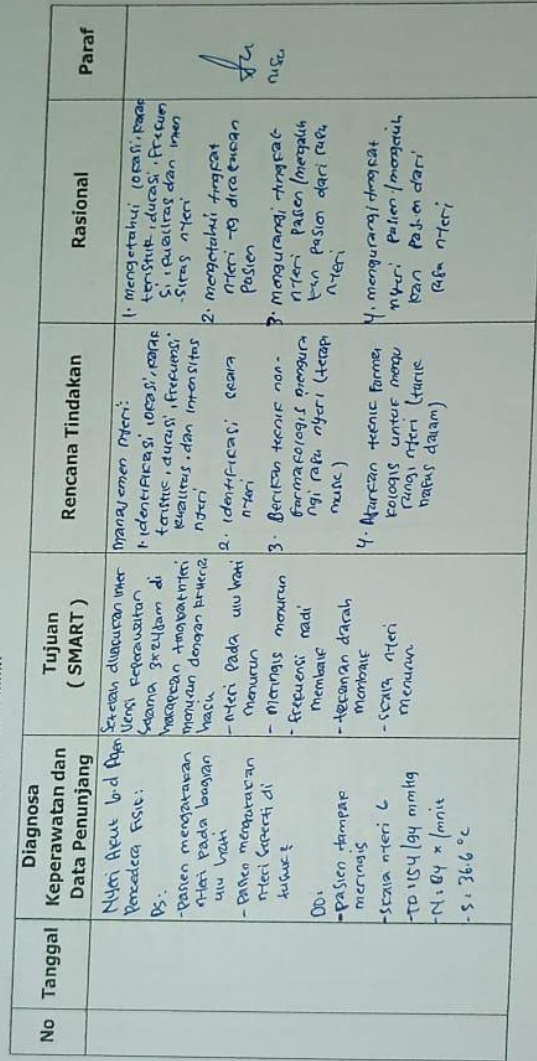 No
Tanggal
Diagnosa
Keperawatan dan
Data Penunjang
Tujuan
( SMART )
Rencana Tindakan
Rasional
Paraf
Nyeri Akut b.d Agen
Pencedera Fisik:
DS:
- Pasien mengatakan
nyeri pada bagian
ulu hati
- Pasien mengatakan
nyeri seperti di
tusuk2
DO:
- pasien tampak
meringis
- skala nyeri 6
- TD: 154/94 mmHg
- N: 84 x/mnit
- S: 36.6 °C
Setelah dilakukan inter
vensi keperawatan
selama 3x24 jam di
harapkan tingkat nyeri
menurun dengan kriteria
hasil
- nyeri pada ulu hati
menurun
- meringis menurun
- frekuensi nadi
membaik
- tekanan darah
membaik
- skala nyeri
menurun
manajemen nyeri:
1. identifikasi lokasi, karak
teristik, durasi, frekuensi
kualitas, dan intensitas
nyeri
2. identifikasi skala
nyeri
3. Berikan teknik non-
farmakologis mengura
ngi rasa nyeri (terapi
music)
4. Ajarkan teknik farma
kologis untuk mengu
rangi nyeri (tarik
nafas dalam)
1. mengetahui lokasi, karak
teristik, durasi, frekuen
si, kualitas dan inten
-sitas nyeri
2. mengetahui tingkat
nyeri yg dirasakan
pasien
3. mengurangi tingkat
nyeri pasien/mengalih
kan pasien dari rasa
nyeri
4. mengurangi tingkat
nyeri pasien/mengalih
kan pasien dari
rasa nyeri